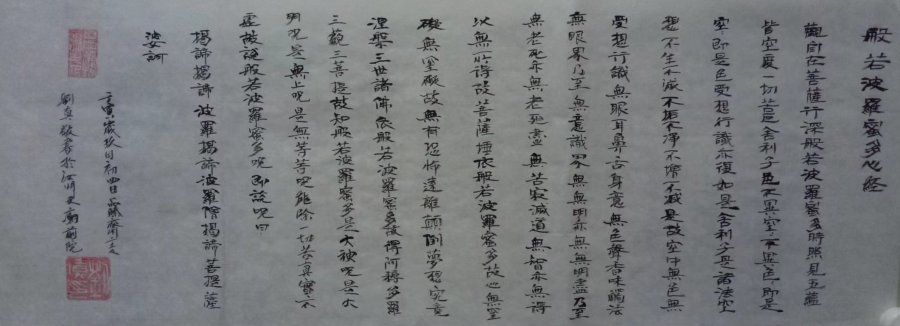 般若波羅蜜多心經
觀自在菩薩行深般若波羅蜜多時照見五蘊
皆空度一切苦厄舍利子色不異空空不異色色即是
空空即是色受想行識亦復如是舍利子是諸法空
想不生不滅不垢不淨不增不減是故空中無色無
受想行識無眼耳鼻舌身意無色聲香味觸法
無眼界乃至無意識界無無明亦無無明盡乃至
無老死亦無老死盡無苦寂滅道無智亦無得
以無所得故菩薩埵依般若波羅蜜多故心無罣
礙無罣礙故無有恐怖遠離顛倒夢想究竟
涅槃三世諸佛依般若波羅蜜多故得阿耨多羅
三藐三菩提故知般若波羅蜜多是大神呪是大
明呪是無上呪是無等等呪能除一切苦真實不
虛故說般若波羅蜜多呪即說呪曰
揭諦揭諦波羅揭諦波羅僧揭諦菩提薩
婆訶
歲 月初四日
劉 敬 於 院